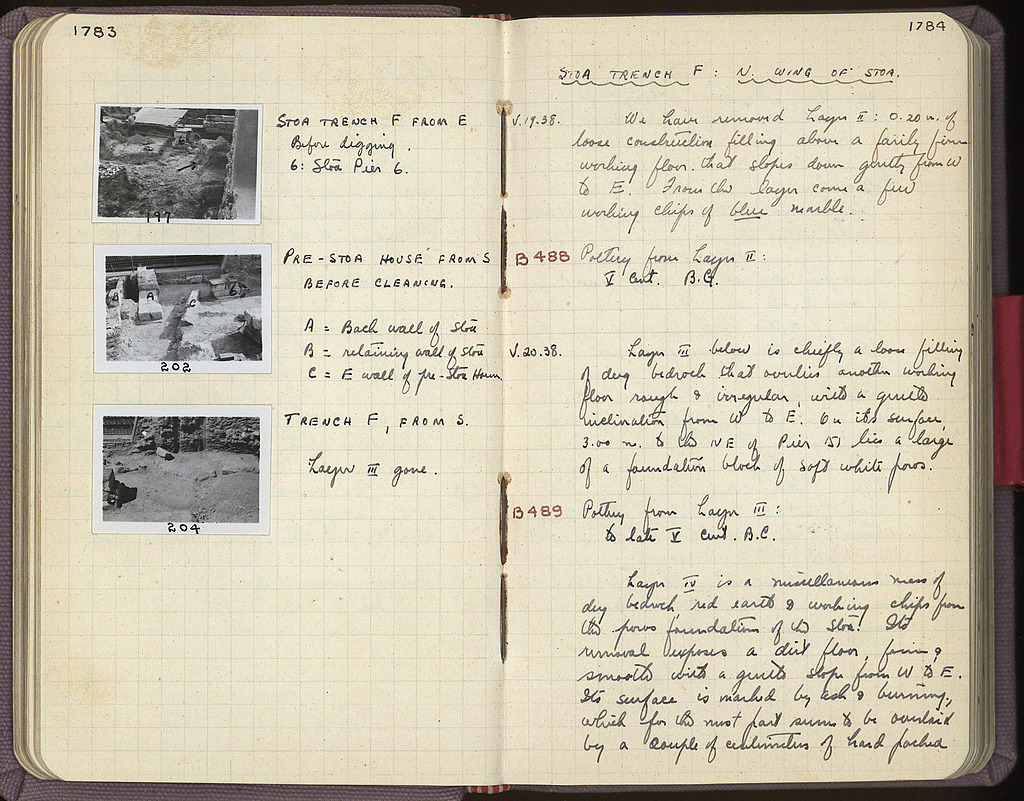 1783
197
STOA TRENCH F FROM E
Before digging.
6: Stoa Pier 6.
B
A
C
6
202
PRE-STOA HOUSE FROM S
BEFORE CLEANING.
A = Back wall of Stoa
B = retaining wall of Stoa
C = E wall of pre-Stoa House
204
TRENCH F, FROM S.
Layer III gone.
1784
STOA TRENCH F: N. WING OF STOA.
V.19.38.
We have removed Layer II: 0.20 m. of
loose construction filling above a fairly firm
working floor that slopes down gently from W
to E. From the layer come a few
working chips of blue marble.
B488
Pottery from Layer II:
V cent. B.C.
V.20.38.
Layer III below is chiefly a loose filling
of dug bedrock that overlies another working
floor rough & irregular, with a gentle
inclination from W to E. On its surface,
3.00 m. to the NE of Pier 15 lies a large
of a foundation block of soft white poros.
B489
Pottery from Layer III:
to late V cent. B.C.
Layer IV is a miscellaneous mass of
dug bedrock red earth & working chips from
the poros foundation of the Stoa. Its
removal exposes a dirt floor, firm &
smooth with a gentle slope from W to E.
Its surface is marked by ash & burning,
which for the most part seems to be overlaid
by a couple of centimetres of hard packed